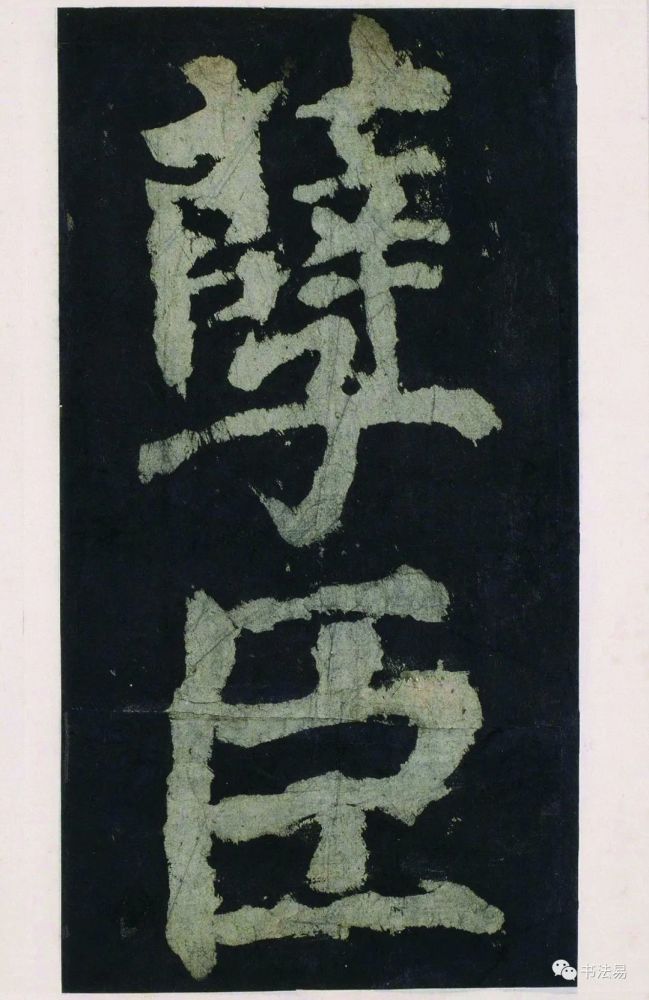 孼
臣
书法易